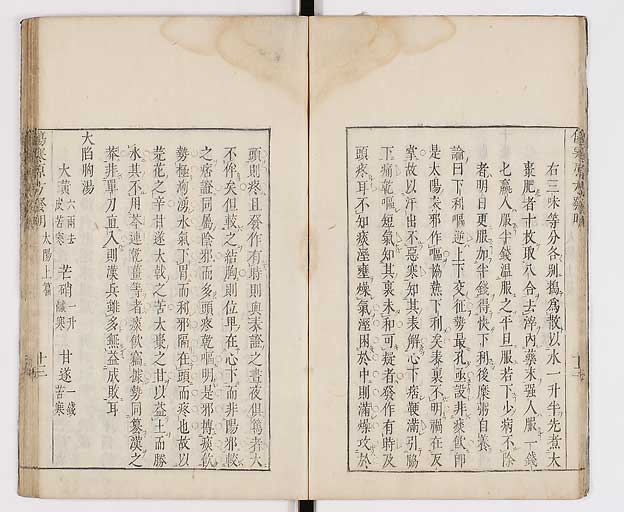 右三味等分各別搗爲散以水一升半先煮大
棗肥者十枚取八合去滓內藥末强人服一錢
七羸人服半錢溫服之平旦服若下少病不除
者明日更服加半錢得快下利後糜粥自養
論曰下利嘔逆上下交征勢最孔亟設非痰飲卽
是太陽表邪作嘔協熱下利矣表裏不明禍在反
掌故以汗出不惡寒知其表解心下痞鞕滿引脇
下痛乾嘔短氣知其裏未和可疑者發作有時及
頭疼耳不知痰溼壅燥氣溼困於中則滿燥攻於
頭則疼且發作有時則與表證之晝夜俱篤者大
不侔矣但較之結胸則位畢在心下而非陽邪較
之痞證同屬陰邪而多頭疼乾嘔明是邪搏痰飲
勢極洶湧水氣下胃而利邪隔在頭而疼也故以
芫花之辛甘遂大戟之苦大棗之甘以益土而勝
水其不用芩連乾薑等者痰飲竊據勢同纂漢之
莽非單刀直入則漢兵雖多無益成敗耳
大陷胸湯
大黃六兩去皮苦寒 芒硝一升鹹寒 甘遂一錢苦寒
傷寒原方發明 太陽上篇 十三